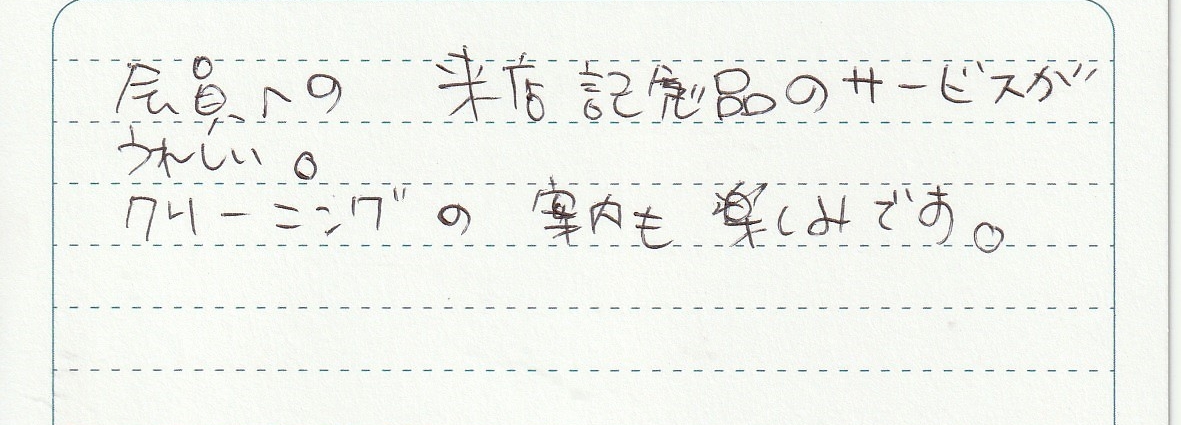 会員への 来店記念品のサービスが
うれしい。
クリーニングの 案内も 楽しみです。